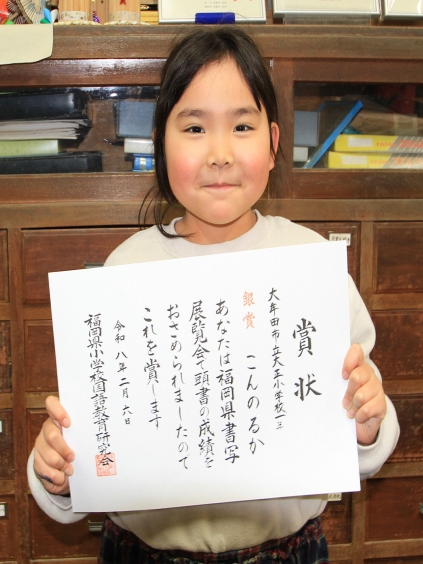 賞状
大牟田市立大正小学校一年
銀賞 こんのるか
あなたは福岡県書写
展覧会で頭書の成績を
おさめられましたので
これを賞します
令和八年二月六日
福岡県小学校国語教育研究会